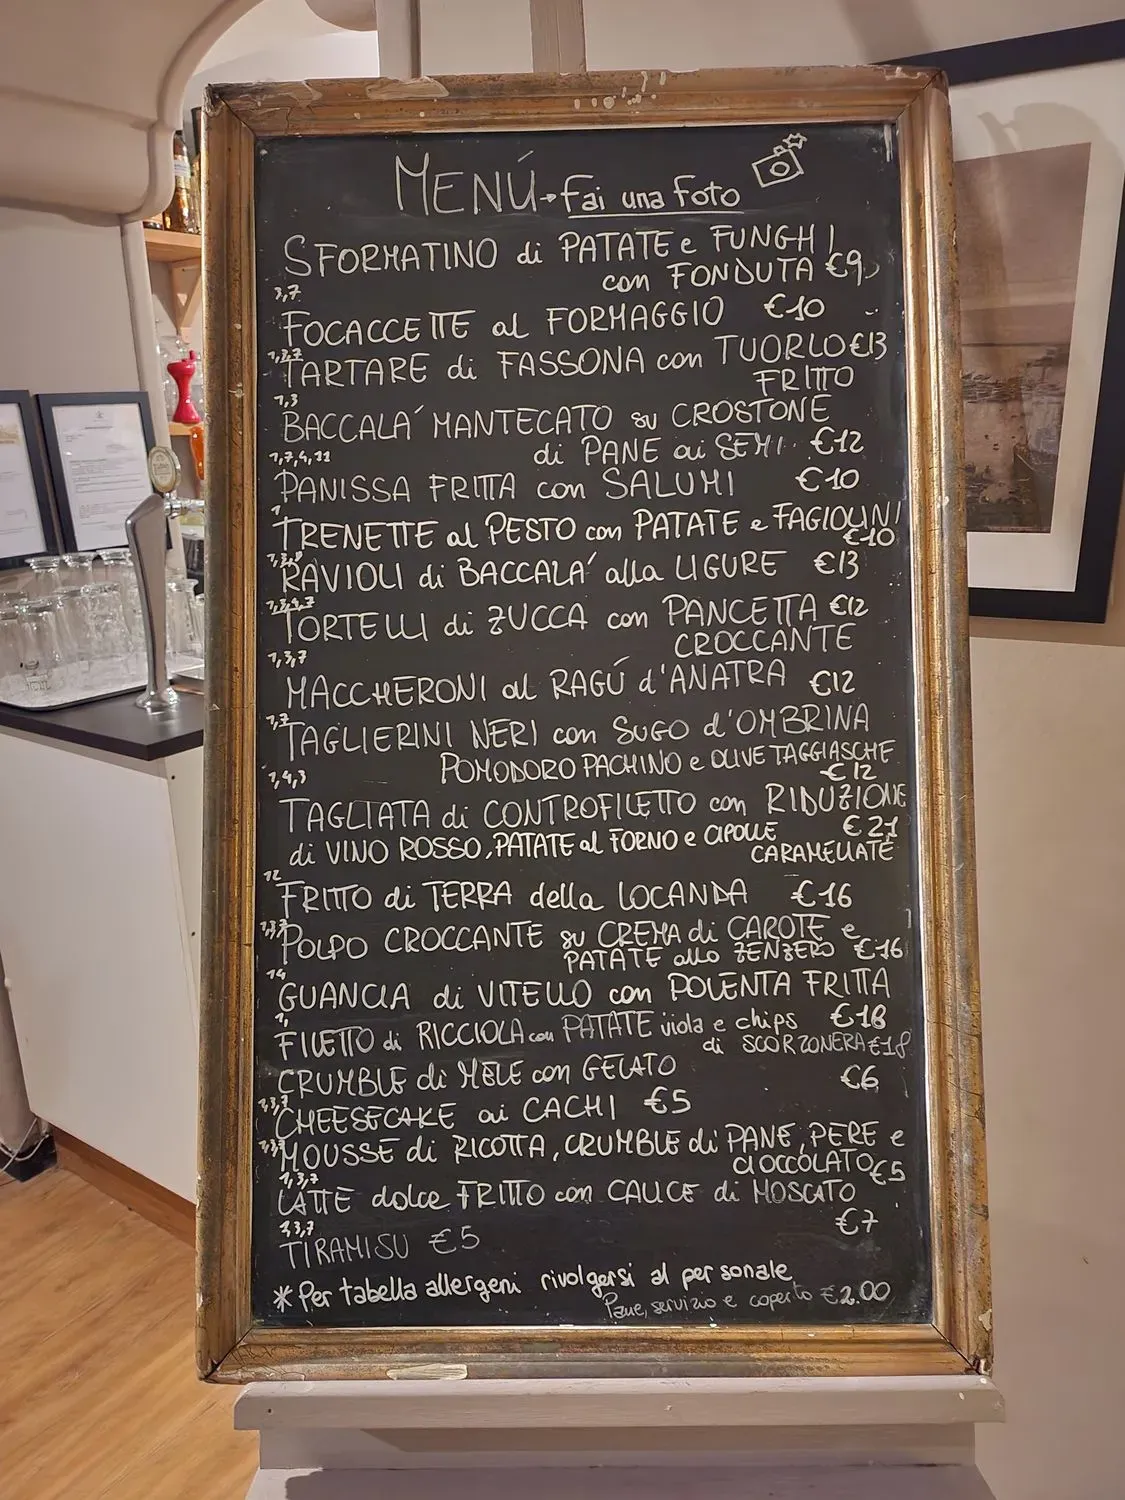 MENÚ→Fai una foto
SFORMATINO di PATATE e FUNGHI
con FONDUTA €9
3,7
FOCACCETTE al FORMAGGIO €10
1,3,7
TARTARE di FASSONA con TUORLO €13
FRITTO
1,3
BACCALA´ MANTECATO su CROSTONE
di PANE ai SEMI €12
1,7,4,11
PANISSA FRITTA con SALUMI €10
1
TRENETTE al PESTO con PATATE e FAGIOLINI
€10
1,3,8
RAVIOLI di BACCALA´ alla LIGURE €13
1,3,4,7
TORTELLI di ZUCCA con PANCETTA €12
CROCCANTE
1,3,7
MACCHERONI al RAGÚ d'ANATRA €12
1,7
TAGLIERINI NERI con SUGO d'OMBRINA
POMODORO PACHINO e OLIVE TAGGIASCHE
1,4,3 €12
TAGLIATA di CONTROFILETTO con RIDUZIONE
€21
di VINO ROSSO, PATATE al FORNO e CIPOLLE
CARAMELLATE
12
FRITTO di TERRA della LOCANDA €16
1,3,7
POLPO CROCCANTE su CREMA di CAROTE e
PATATE allo ZENZERO €16
14
GUANCIA di VITELLO con POLENTA FRITTA
1, €18
FILETTO di RICCIOLA con PATATE viola e chips
di SCORZONERA €18
CRUMBLE di MELE con GELATO €6
1,3,7
CHEESECAKE ai CACHI €5
1,3,7
MOUSSE di RICOTTA, CRUMBLE di PANE, PERE e
CIOCCOLATO €5
1,3,7
LATTE dolce FRITTO con CALICE di MOSCATO
€7
1,3,7
TIRAMISU €5
* Per tabella allergeni rivolgersi al personale
Pane, servizio e coperto €2.00